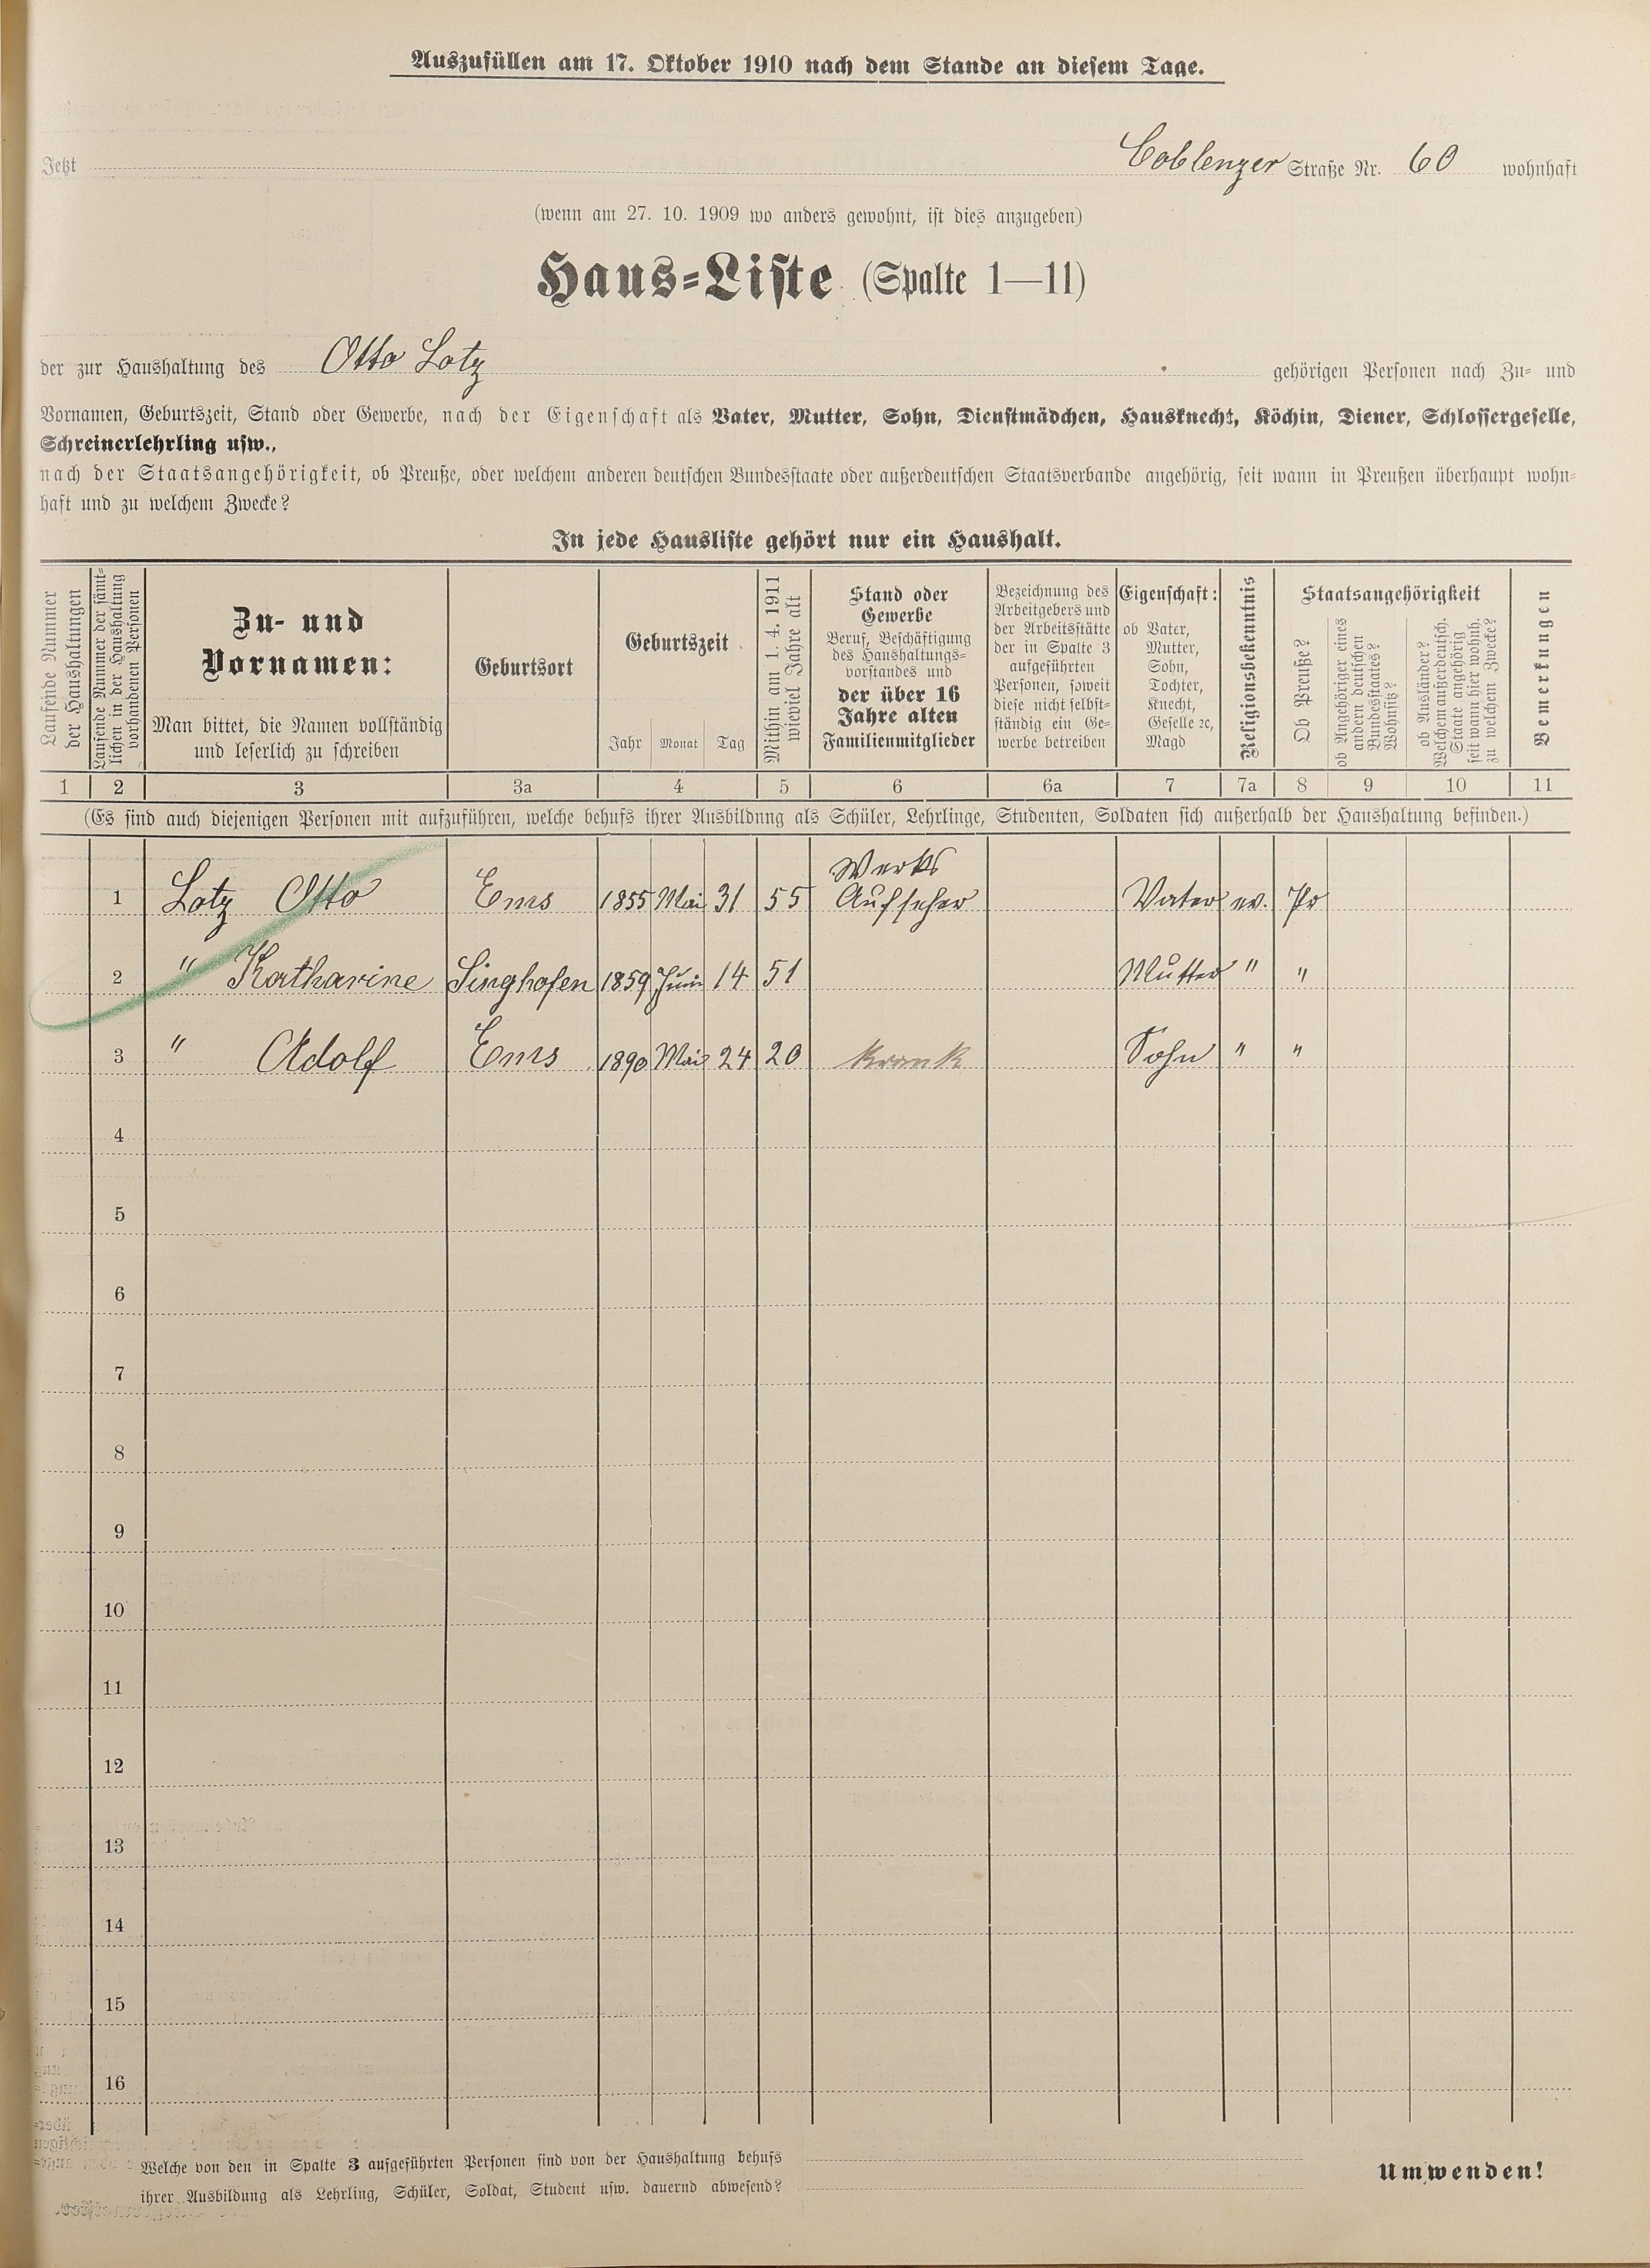 Auszufüllen am 17. Oktober 1910 nach dem Stande an diesem Tage.
Jetzt Coblenzer Straße Nr. 60 wohnhaft
(wenn am 27. 10. 1909 wo anders gewohnt, ist dies anzugeben)
Haus=Liste (Spalte 1—11)
der zur Haushaltung des Otto Lotz gehörigen Personen nach Zu= und
Vornamen, Geburtszeit, Stand oder Gewerbe, nach der Eigenschaft als Vater, Mutter, Sohn, Dienstmädchen, Hausknecht, Köchin, Diener, Schlossergeselle,
Schreinerlehrling usw.,
nach der Staatsangehörigkeit, ob Preuße, oder welchem anderen deutschen Bundesstaate oder außerdeutschen Staatsverbande angehörig, seit wann in Preußen überhaupt wohn=
haft und zu welchem Zwecke?
In jede Hausliste gehört nur ein Haushalt.
Laufende Nummer
der Haushaltungen
Laufende Nummer der sämt=
lichen in der Haushaltung
vorhandenen Personen
Zu- und
Vornamen:
Man bittet, die Namen vollständig
und leserlich zu schreiben
Geburtsort
Geburtszeit
Jahr Monat Tag
Mithin am 1. 4. 1911
wieviel Jahre alt
Stand oder
Gewerbe
Beruf, Beschäftigung
des Haushaltungs=
vorstandes und
der über 16
Jahre alten
Familienmitglieder
Bezeichnung des
Arbeitgebers und
der Arbeitsstätte
der in Spalte 3
aufgeführten
Personen, soweit
diese nicht selbst=
ständig ein Ge=
werbe betreiben
Eigenschaft:
ob Vater,
Mutter,
Sohn,
Tochter,
Knecht,
Geselle ꝛc,
Magd
Religionsbekenntnis
Staatsangehörigkeit
Ob Preuße?
ob Angehöriger eines
andern deutschen
Bundesstaates?
Wohnsitz?
ob Ausländer?
Welchem außerdeutsch.
Staate angehörig
seit wann hier wohnh.
zu welchem Zwecke?
Bemerkungen
1 2 3 3a 4 5 6 6a 7 7a 8 9 10 11
(Es sind auch diejenigen Personen mit aufzuführen, welche behufs ihrer Ausbildung als Schüler, Lehrlinge, Studenten, Soldaten sich außerhalb der Haushaltung befinden.)
Werks
1 Lotz Otto Ems 1855 Mai 31 55 Aufseher Vater ev. Pr
2 " Katharine Singhofen 1859 Juni 14 51 Mutter " "
3 " Adolf Ems 1890 Mai 24 20 Krank Sohn " "
4
5
6
7
8
9
10
11
12
13
14
15
16
Welche von den in Spalte 3 aufgeführten Personen sind von der Haushaltung behufs
ihrer Ausbildung als Lehrling, Schüler, Soldat, Student usw. dauernd abwesend?
Umwenden!